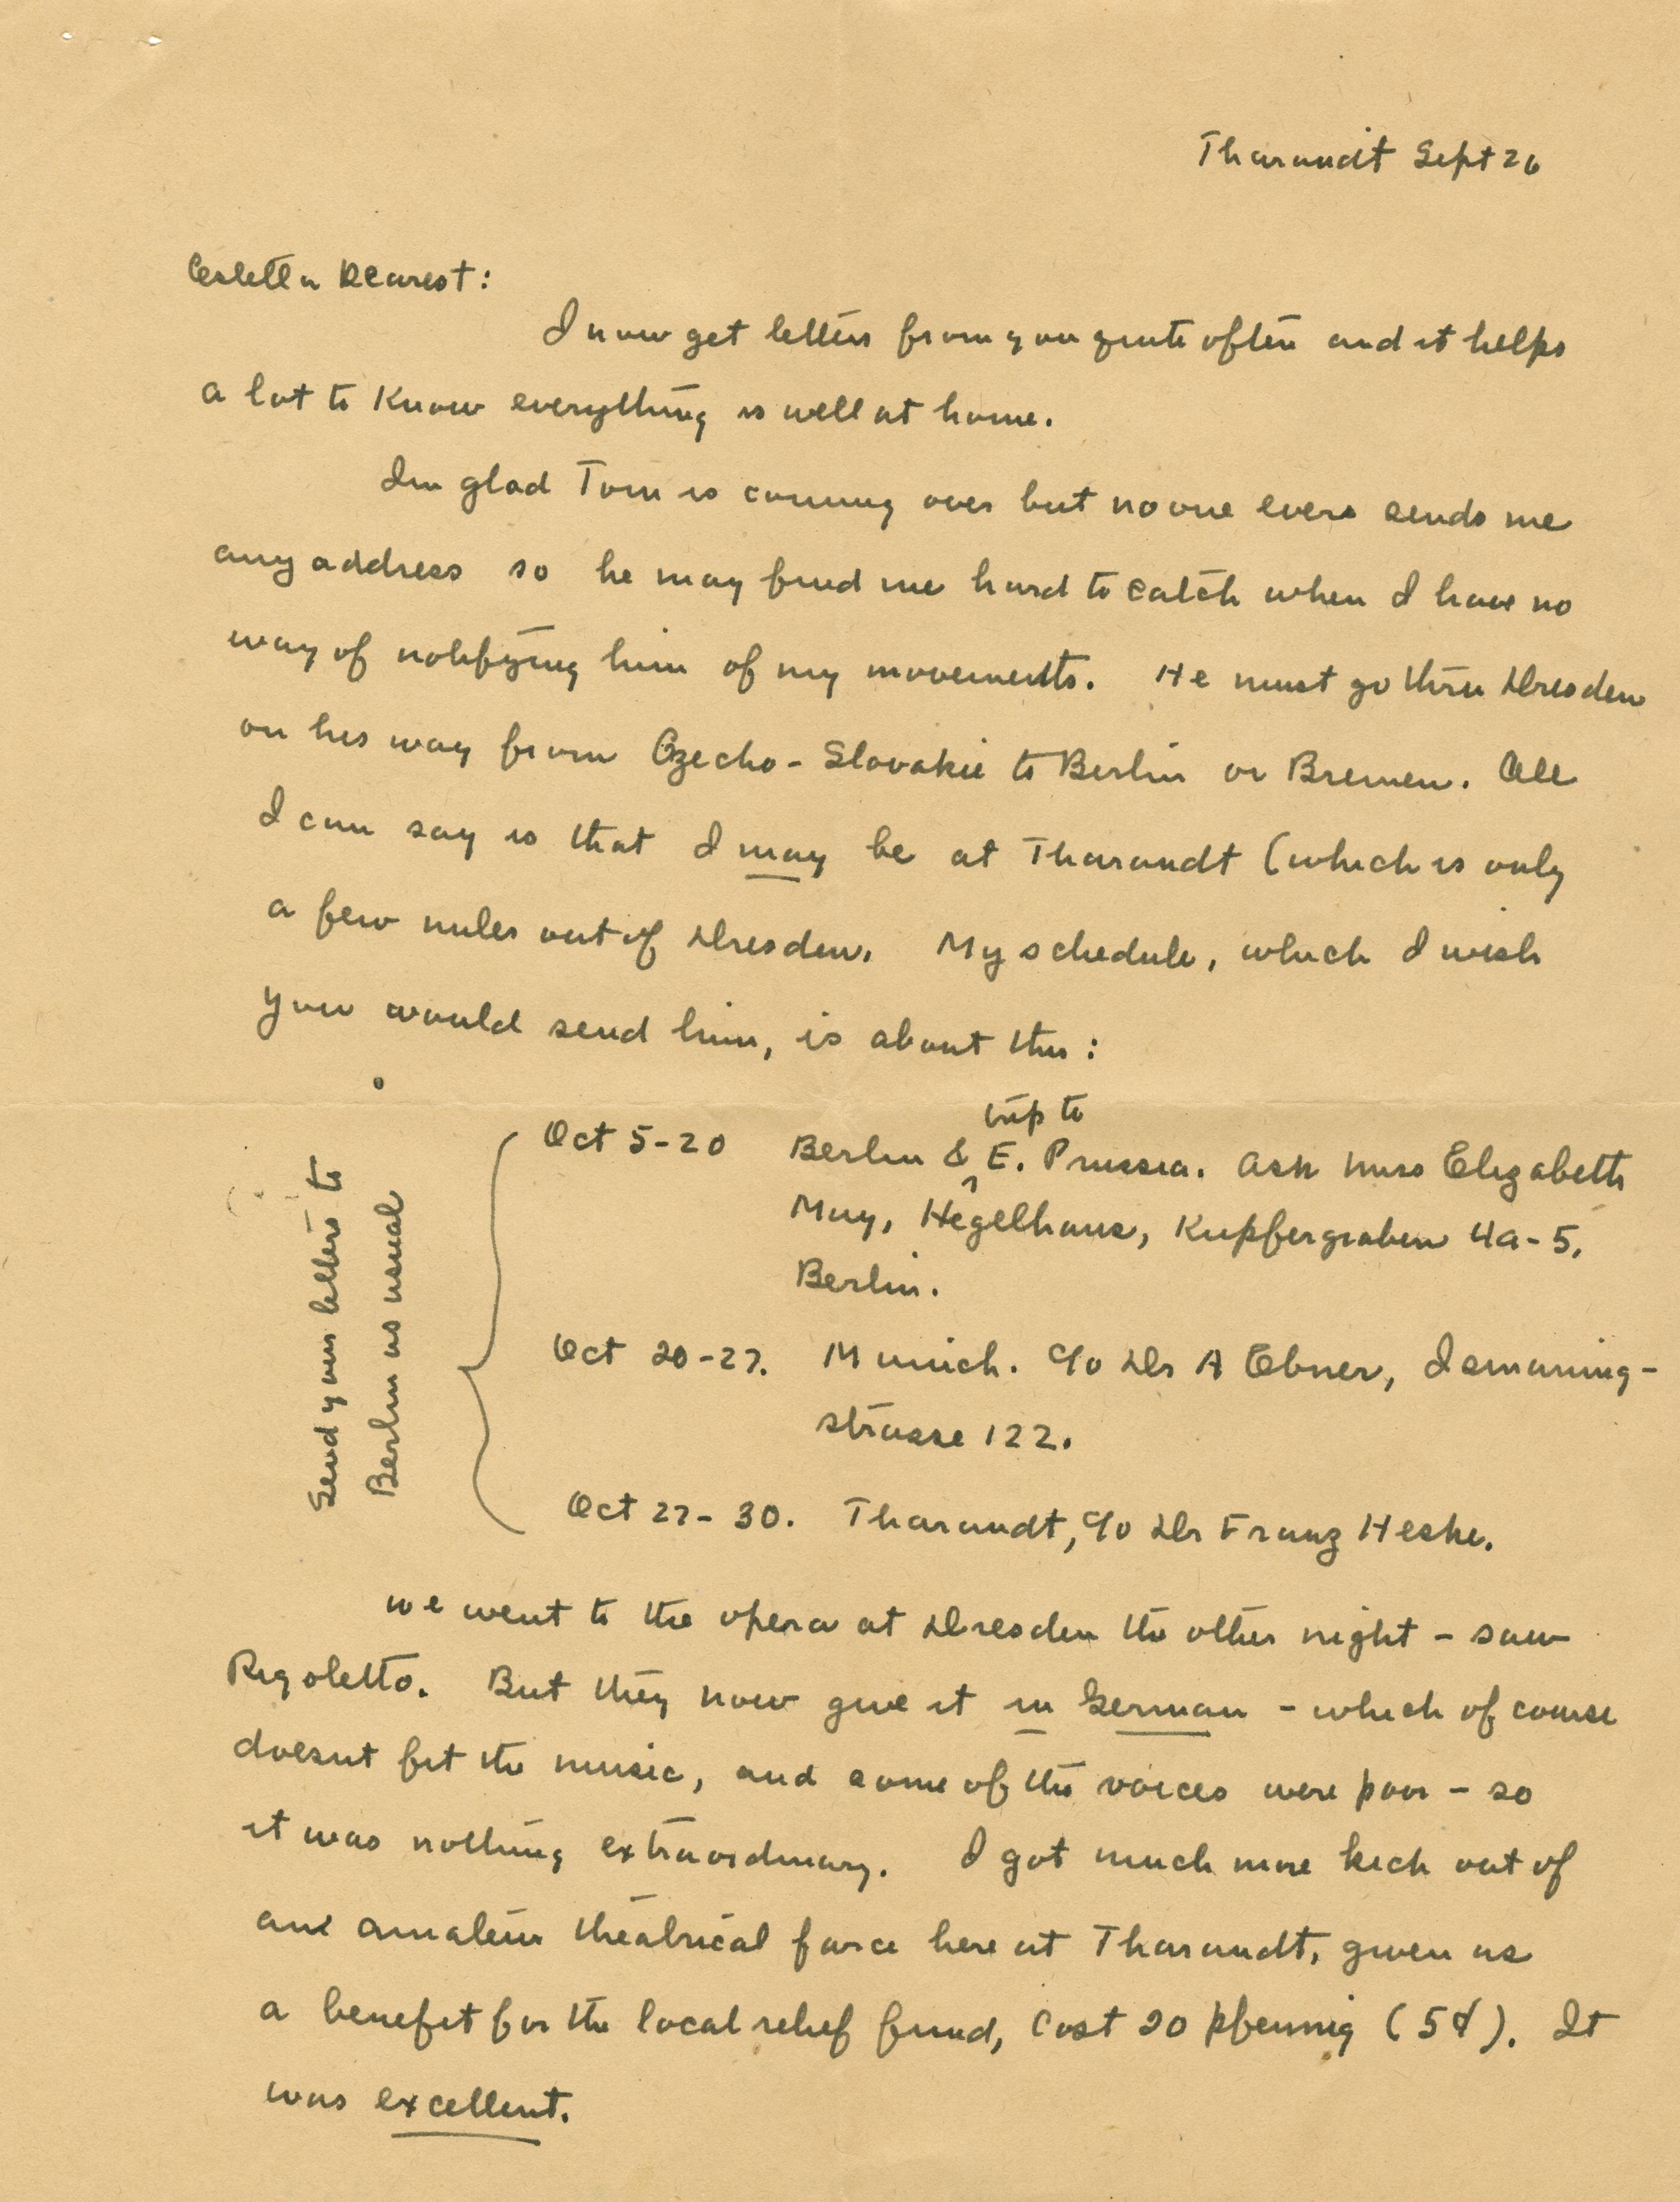 Tharandt Sept 26
Estella Dearest:
I now get letters from you quite often and it helps
a lot to know everything is well at home.
Im glad Tom is coming over but no one evers sends me
any address so he may find me hard to catch when I have no
way of notifying him of my movements. He must go thru Dresden
on his way from Czecho-Slovakie to Berlin or Bremen. All
I can say is that I may be at Tharandt (which is only
a few miles out of Dresden. My schedule, which I wish
you would send him, is about this:
Send your letters to
Berlin as usual
Oct 5-20 Berlin & trip to E. Prussia. Ask Miss Elizabeth
May, Hegelhaus, Kupfergraben 4a-5,
Berlin.
Oct 20-27. Munich. c/o Dr A Ebner, Ismaning-
strasse 122.
Oct 27-30. Tharandt, c/o Dr Franz Heske.
We went to the opera at Dresden the other night - saw
Rigoletto. But they now give it in German - which of course
doesnt fit the music, and some of the voices were poor - so
it was nothing extraordinary. I got much more kick out of
an amateur theatrical farce here at Tharandt, given as
a benefit for the local relief fund, cost 20 pfennig (5¢). It
was excellent.